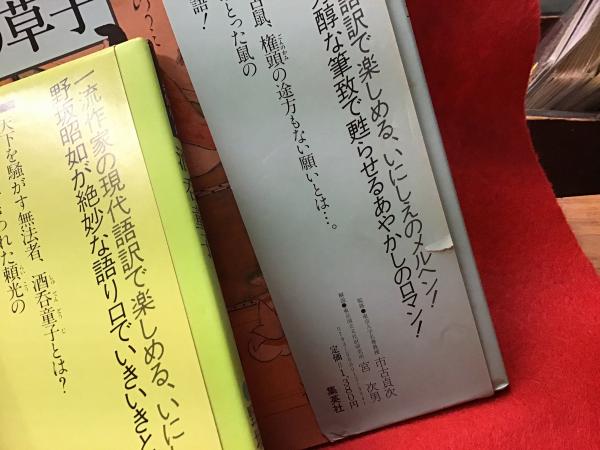 草子
語訳で楽しめる、いにしえのメルヘン!
芳醇な筆致で甦らせるあやかしのロマン!
古鼠、権頭の途方もない願いとは…。
とった鼠の
語!
市古貞次
宮 次男
定価 1,380円
集英社
一流作家の現代語訳で楽しめる、いに
野坂昭如が絶妙な語り口でいきいきと
天下を騒がす無法者、酒呑童子とは?
われた頼光の